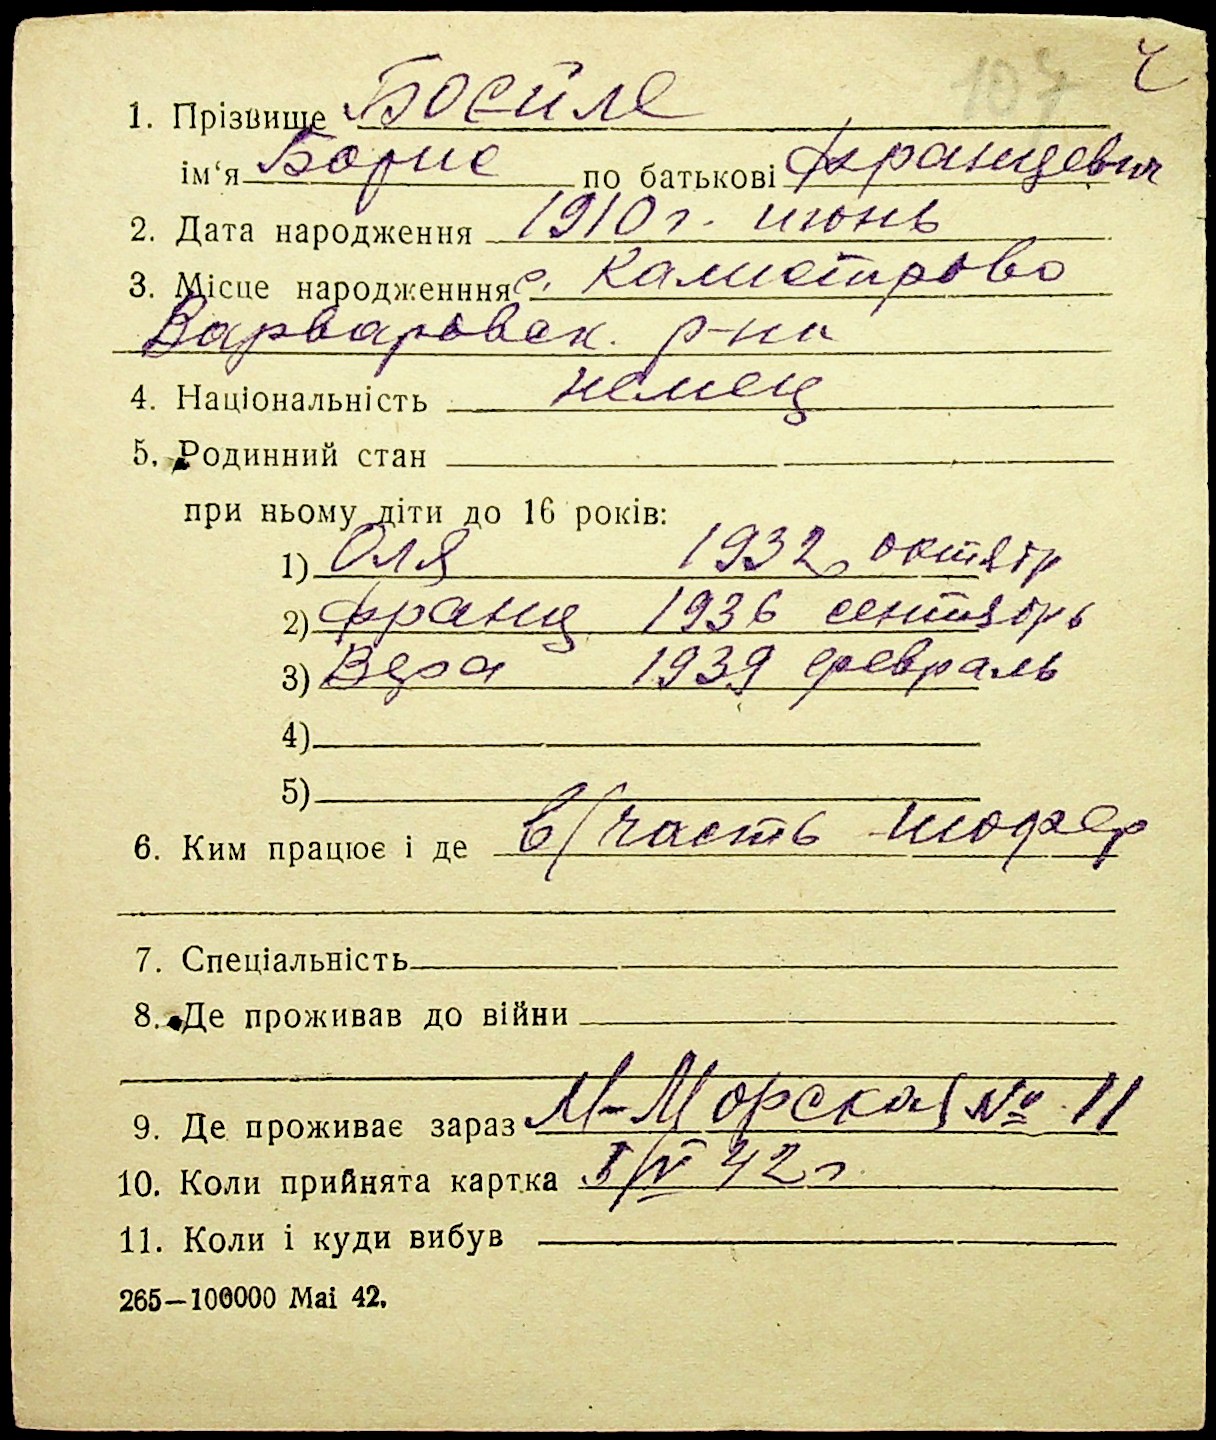 107 Ч
1. Прізвище Босйле
ім‘я Борис по батькові Францевич
2. Дата народження 1910 г. июнь
3. Місце народженння с. Калистрово
Варваровск. р-на
4. Національність немец
5. Родинний стан
при ньому діти до 16 років:
1) Оля 1932 октябр
2) Франц 1936 сентябрь
3) Вера 1939 февраль
4)
5)
6. Ким працює і де в/часть шофер
7. Спеціальність
8. Де проживав до війни
9. Де проживає зараз М-Морская № 11
10. Коли прийнята картка 42 г.
11. Коли і куди вибув
265—100000 Mai 42.